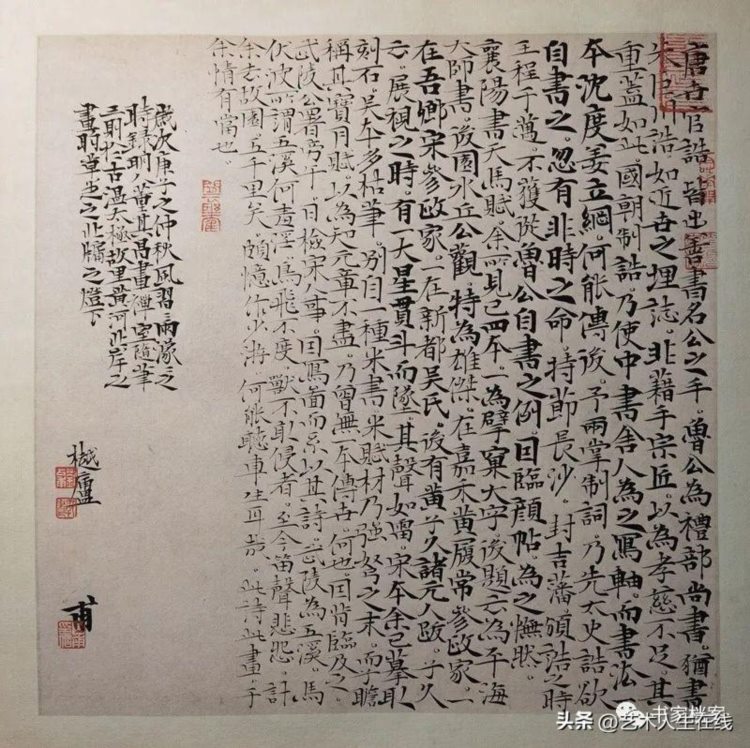 唐世官誥。皆出善書名公之手。魯公為禮部尚書。猶書
朱巨川誥。如近世之埋誌。非藉手宗匠。以為孝慈不足。其
重蓋如此。國朝制誥。乃使中書舍人為之寫軸。而書法一
本沈度姜立綱。何能傳後。予兩掌制詞。乃先太史誥欲
自書之。忽有非時之命。持節長沙。封吉藩。頒誥之時
王程于邁。不獲從魯公自書之例。因臨顏帖。為之憮然。
襄陽書天馬賦。余所見已四本。一為擘窠大字。後題云為平海
大師書。後園水丘公觀。特為雄傑。在嘉禾黃履常參政家。一
在吾鄉宋參政家。一在新都吳氏。後有黃子久諸元人跋。子久
云。展視之時。有一大星貫斗而墜。其聲如雷。宋本余已摹取
刻石。吳本多枯筆。別自一種米書。米賦材乃強弩之末。而子瞻
稱其寶月賦。以為知元章不盡。乃曾無本傳世。何也。因背臨及之。
武陵公署旁午。日檢宋人事。因寫圖而系以其詩。武陵為五溪。馬
伏波所謂五溪何毒淫。鳥飛不度。獸不取侵者。至今笛聲悲怨。計
余去故園五千里矣。頗憶作少游。何能聽車生耳哉。此詩此畫。于
余情有當也。
歲次庚子之仲秋風習習雨濛濛之
時錄明人董其昌畫禪室隨筆
三則於古溫太極故里黃河北岸之
畫草堂之北牖之燈下
樾廬
甫
书家档案
头条 @艺术人生在线